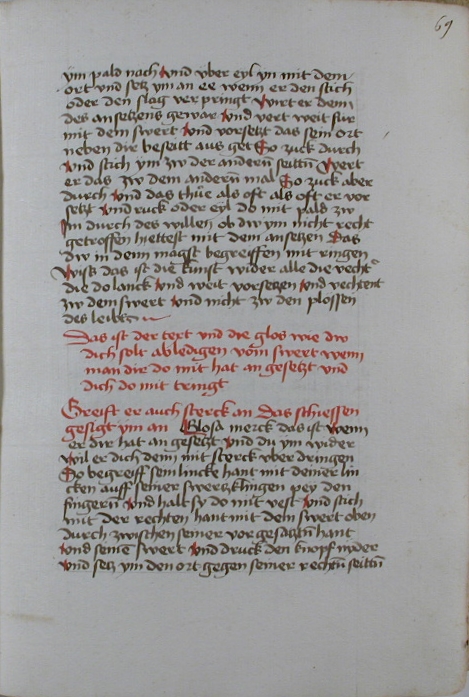 69
ym pald nach Vnd vber eyl yn mit dem
ort vnd setz ym an ee wenn er den stich
oder den slag ver pringt Wirt er denn
des ansetzens gewar Vnd vert weit für
mit dem swert Vnd vorsetzt das sein ort
neben dir beseitt aus get So zuck durch
Vnd stich ym zw der andern seittñ Wert
er das zw dem andern mal So zuck aber
durch Vnd das thüe als oft als oft er vor
setzt Vnd ruck oder eyl do mit pald zw
Im durch des willen ob dw ym nicht recht
getroffen hiettest mit dem ansetzen Das
dw in denn magst begreiffen mit ringen
Wisß das ist die kunst wider alle die vecht
die do lanck Vnd weit vorsetzen Vnd vechtent
zw dem swert Vnd nicht zw den plossen
des leibs
Das ist der text vnd die glos wie dw
dich solt abledigen vom swert wenn
man dir do mit hat an gesetzt vnd
dich do mit tringt
Greift er auch sterck an Das schiessen
gesigt ym an Glosa merck das ist wenn
er dir hat an gesetzt Vnd du ym wider
wil er dich denn mit sterck vber dringen
So begreiff sein lincke hant mit deiner lin
cken auff seiner swertzklingen pey den
fingern Vnd halt sy do mit vest Vnd stich
mit der rechten hant mit dem swert oben
durch zwischen seiner vor gesatztñ hant
Vnd seinē swert Vnd druck den knopf nyder
Vnd setz ym den ort gegen seiner rechtñ seittñ